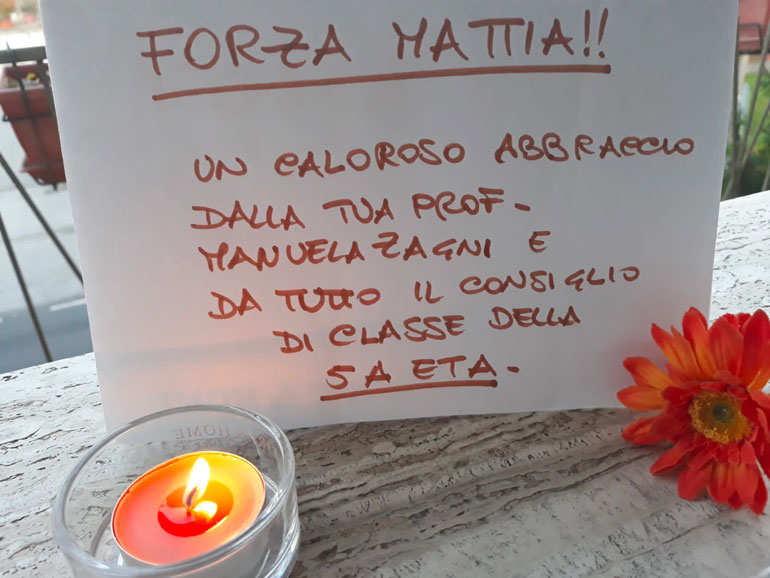 FORZA MATTIA!!
UN CALOROSO ABBRACCIO
DALLA TUA PROF-
MANUELA ZAGNI E
DA TUTTO IL CONSIGLIO
DI CLASSE DELLA
5A ETA-
HOME